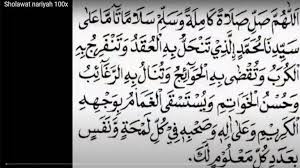 Sholawat nariyah 100x
اَللّٰهُمَّ صَلِّ صَلَاةً كَامِلَةً وَسَلِّمْ سَلَامًا تَامًّا عَلَى
سَيِّدِنَا مُحَمَّدٍ الَّذِيْ تَنْحَلُّ بِهِ الْعُقَدُ وَتَنْفَرِجُ بِهِ
الْكُرَبُ وَتُقْضَى بِهِ الْحَوَائِجُ وَتُنَالُ بِهِ الرَّغَائِبُ
وَحُسْنُ الْخَوَاتِمِ وَيُسْتَسْقَى الْغَمَامُ بِوَجْهِهِ
الْكَرِيْمِ وَعَلَى اٰلِهِ وَصَحْبِهِ فِيْ كُلِّ لَمْحَةٍ وَنَفَسٍ
بِعَدَدِ كُلِّ مَعْلُوْمٍ لَكَ